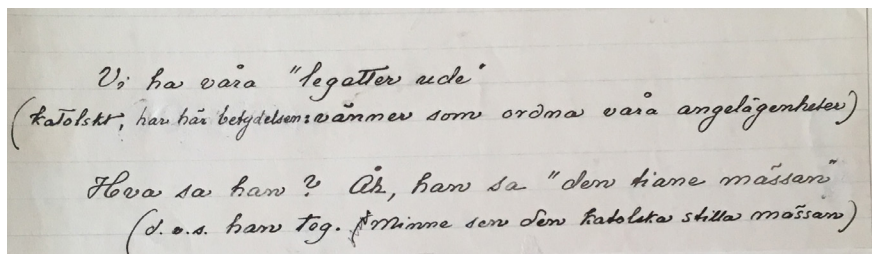 Vi ha våra "legatter ude"
(katolskt, har här betydelsen: vänner som ordna våra angelägenheter)
Hva sa han? Åk, han sa "den tiane mässan"
(d.v.s. han teg. Minne sen den katolska stilla mässan)